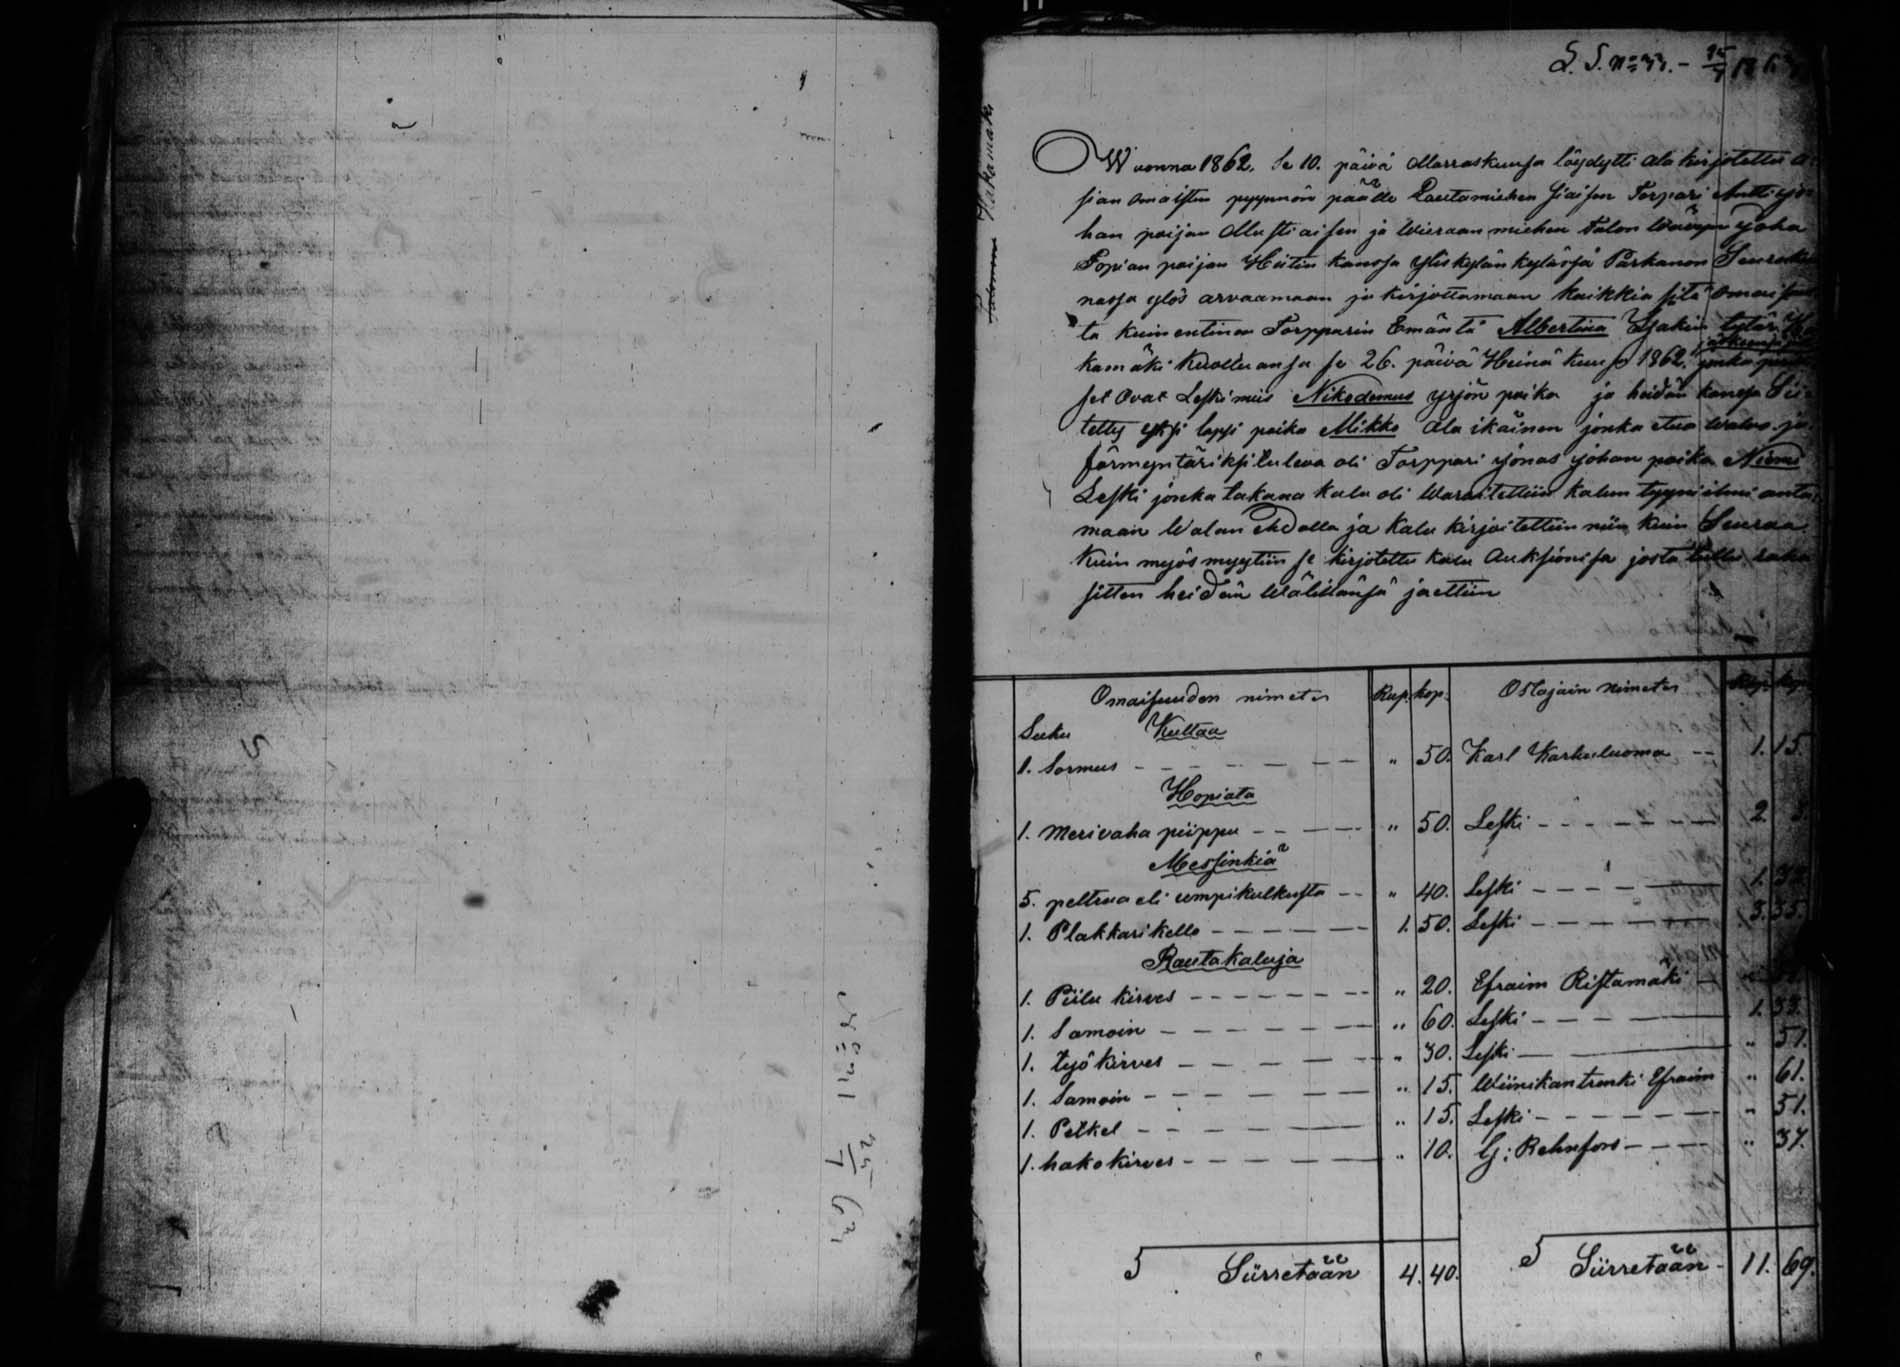 L. S. No 33. - 15/4 1863
Hakamäki
Wuonna 1862. se 10. päivä Marraskuusa löydytti ala kirjotettu a-
sian omaisten pyynnön päälle Lautamiehen siaisen Torpari Antti Jo-
han poijan Mustiaisen ja Wieraan miehen Talon Juha
Topian poijan Heitin kanssa Yliskylän kyläsä Parkanon Seurakun-
nassa ylös arvaamaan ja kirjottamaan kaikkia sitä omaisuut-
ta kuin entinen Torpparin Emäntä Albertina Isakin tytär Ha-
kamäki kuolleansa se 26. päivä Heinä kuus 1862. jälkeensä jonka
set Ovat Leski mies Nikodemus Yrjön poika ja heidän kanssa Sii-
tetty yksi lapsi poika Mikko ala ikäinen jonka etua walvo ja
förmyntäriksi tuleva oli Torppari Jonas Johan poika Niemi
Leski jonka takana kalu oli waroitettiin kalun tyyni ilmi anta-
maan Walan ehdolla ja kalu kirjoitettiin niin kuin Seuraa
Kuin myös myytiin se kirjotettu kalu Auksionisa josta tullu raha
sitten heidän wälillänsä jaettiin
Omaisuuden nimetys Rup. kop. Ostajain nimetys Rup. kop.
Luku Kultaa
1. Sormus " 50. Karl Karhuluoma 1. 15.
Hopiata
1. Merivaha piippu " 50. Leski 2. 5.
Messinkiä
5. peltua eli umpikulkusta " 40. Leski 1. 32.
1. Plakkarikello 1. 50. Leski 3. 35.
Rautakaluja
1. Piilu kirves " 20. Efraim Ristamäki
1. Samoin " 60. Leski 1. 53.
1. työkirves " 30. Leski " 51.
1. Samoin " 15. Wiinikan trenki Efraim " 61.
1. Petkel " 15. Leski " 51.
1. hakokirves " 10. G: Rehnfors " 37.
Siirretään 4. 40. Siirretään 11. 69.